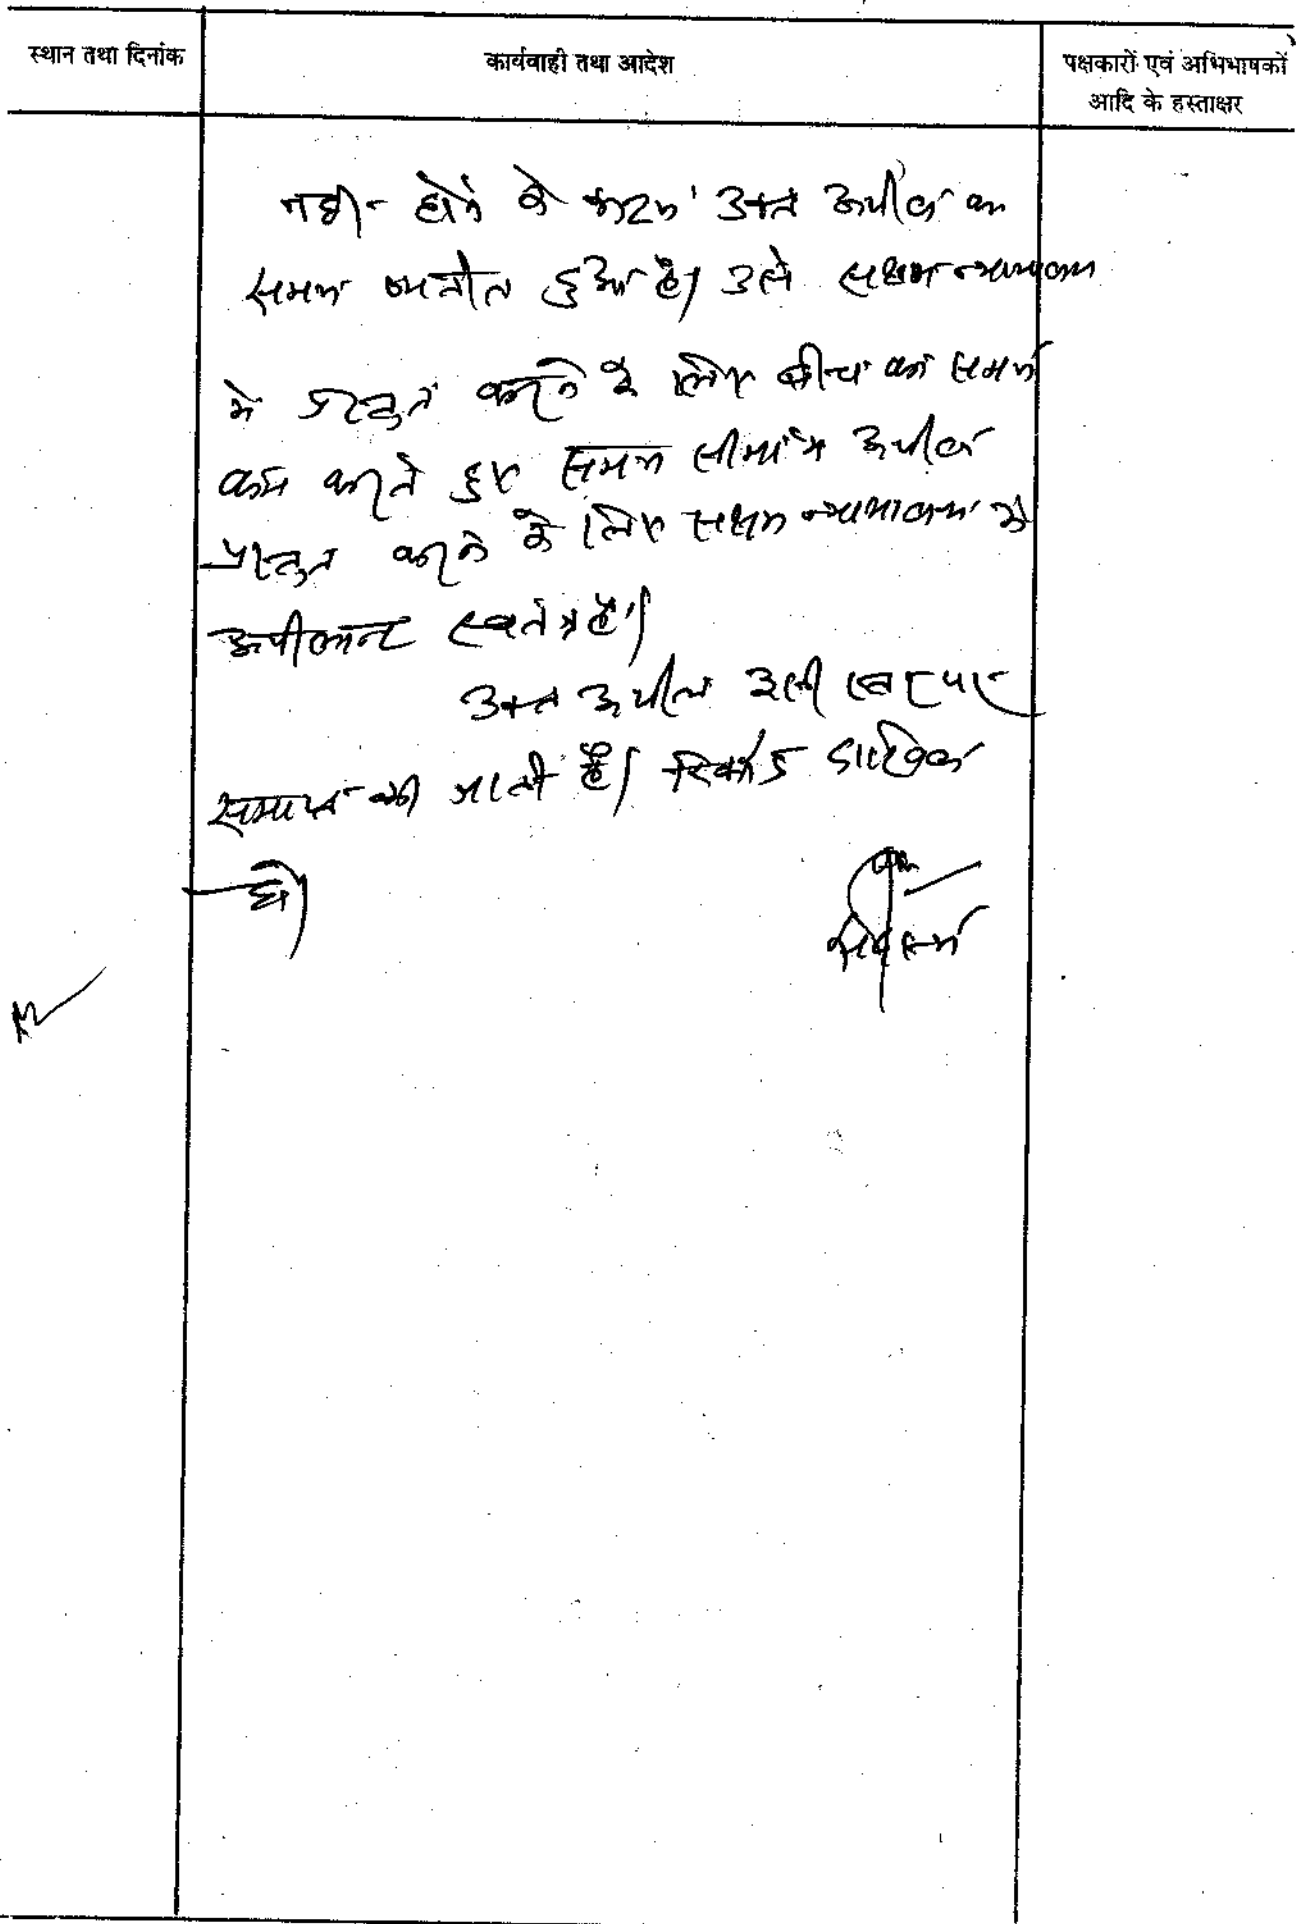 स्थान तथा दिनांक
कार्यवाही तथा आदेश
पक्षकारों एवं अभिभाषकों
आदि के हस्ताक्षर
नही होने के कारण उक्त अपील का
समय व्यतीत हुआ है। उसे सक्षम न्यायालय
मे प्रस्तुत करने के लिए बीच का समय
कम करते हुए समय सीमा मे अपील
प्रस्तुत करने के लिए सक्षम न्यायालय मे
अपीलान्ट स्वतंत्र है।
उक्त अपील इसी स्तर पर
समाप्त की जाती है। रिकार्ड दाखिल
हो।